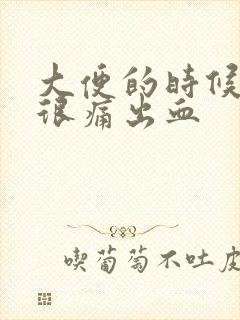 大便的時候
很痛出血
喫葡萄不吐皮